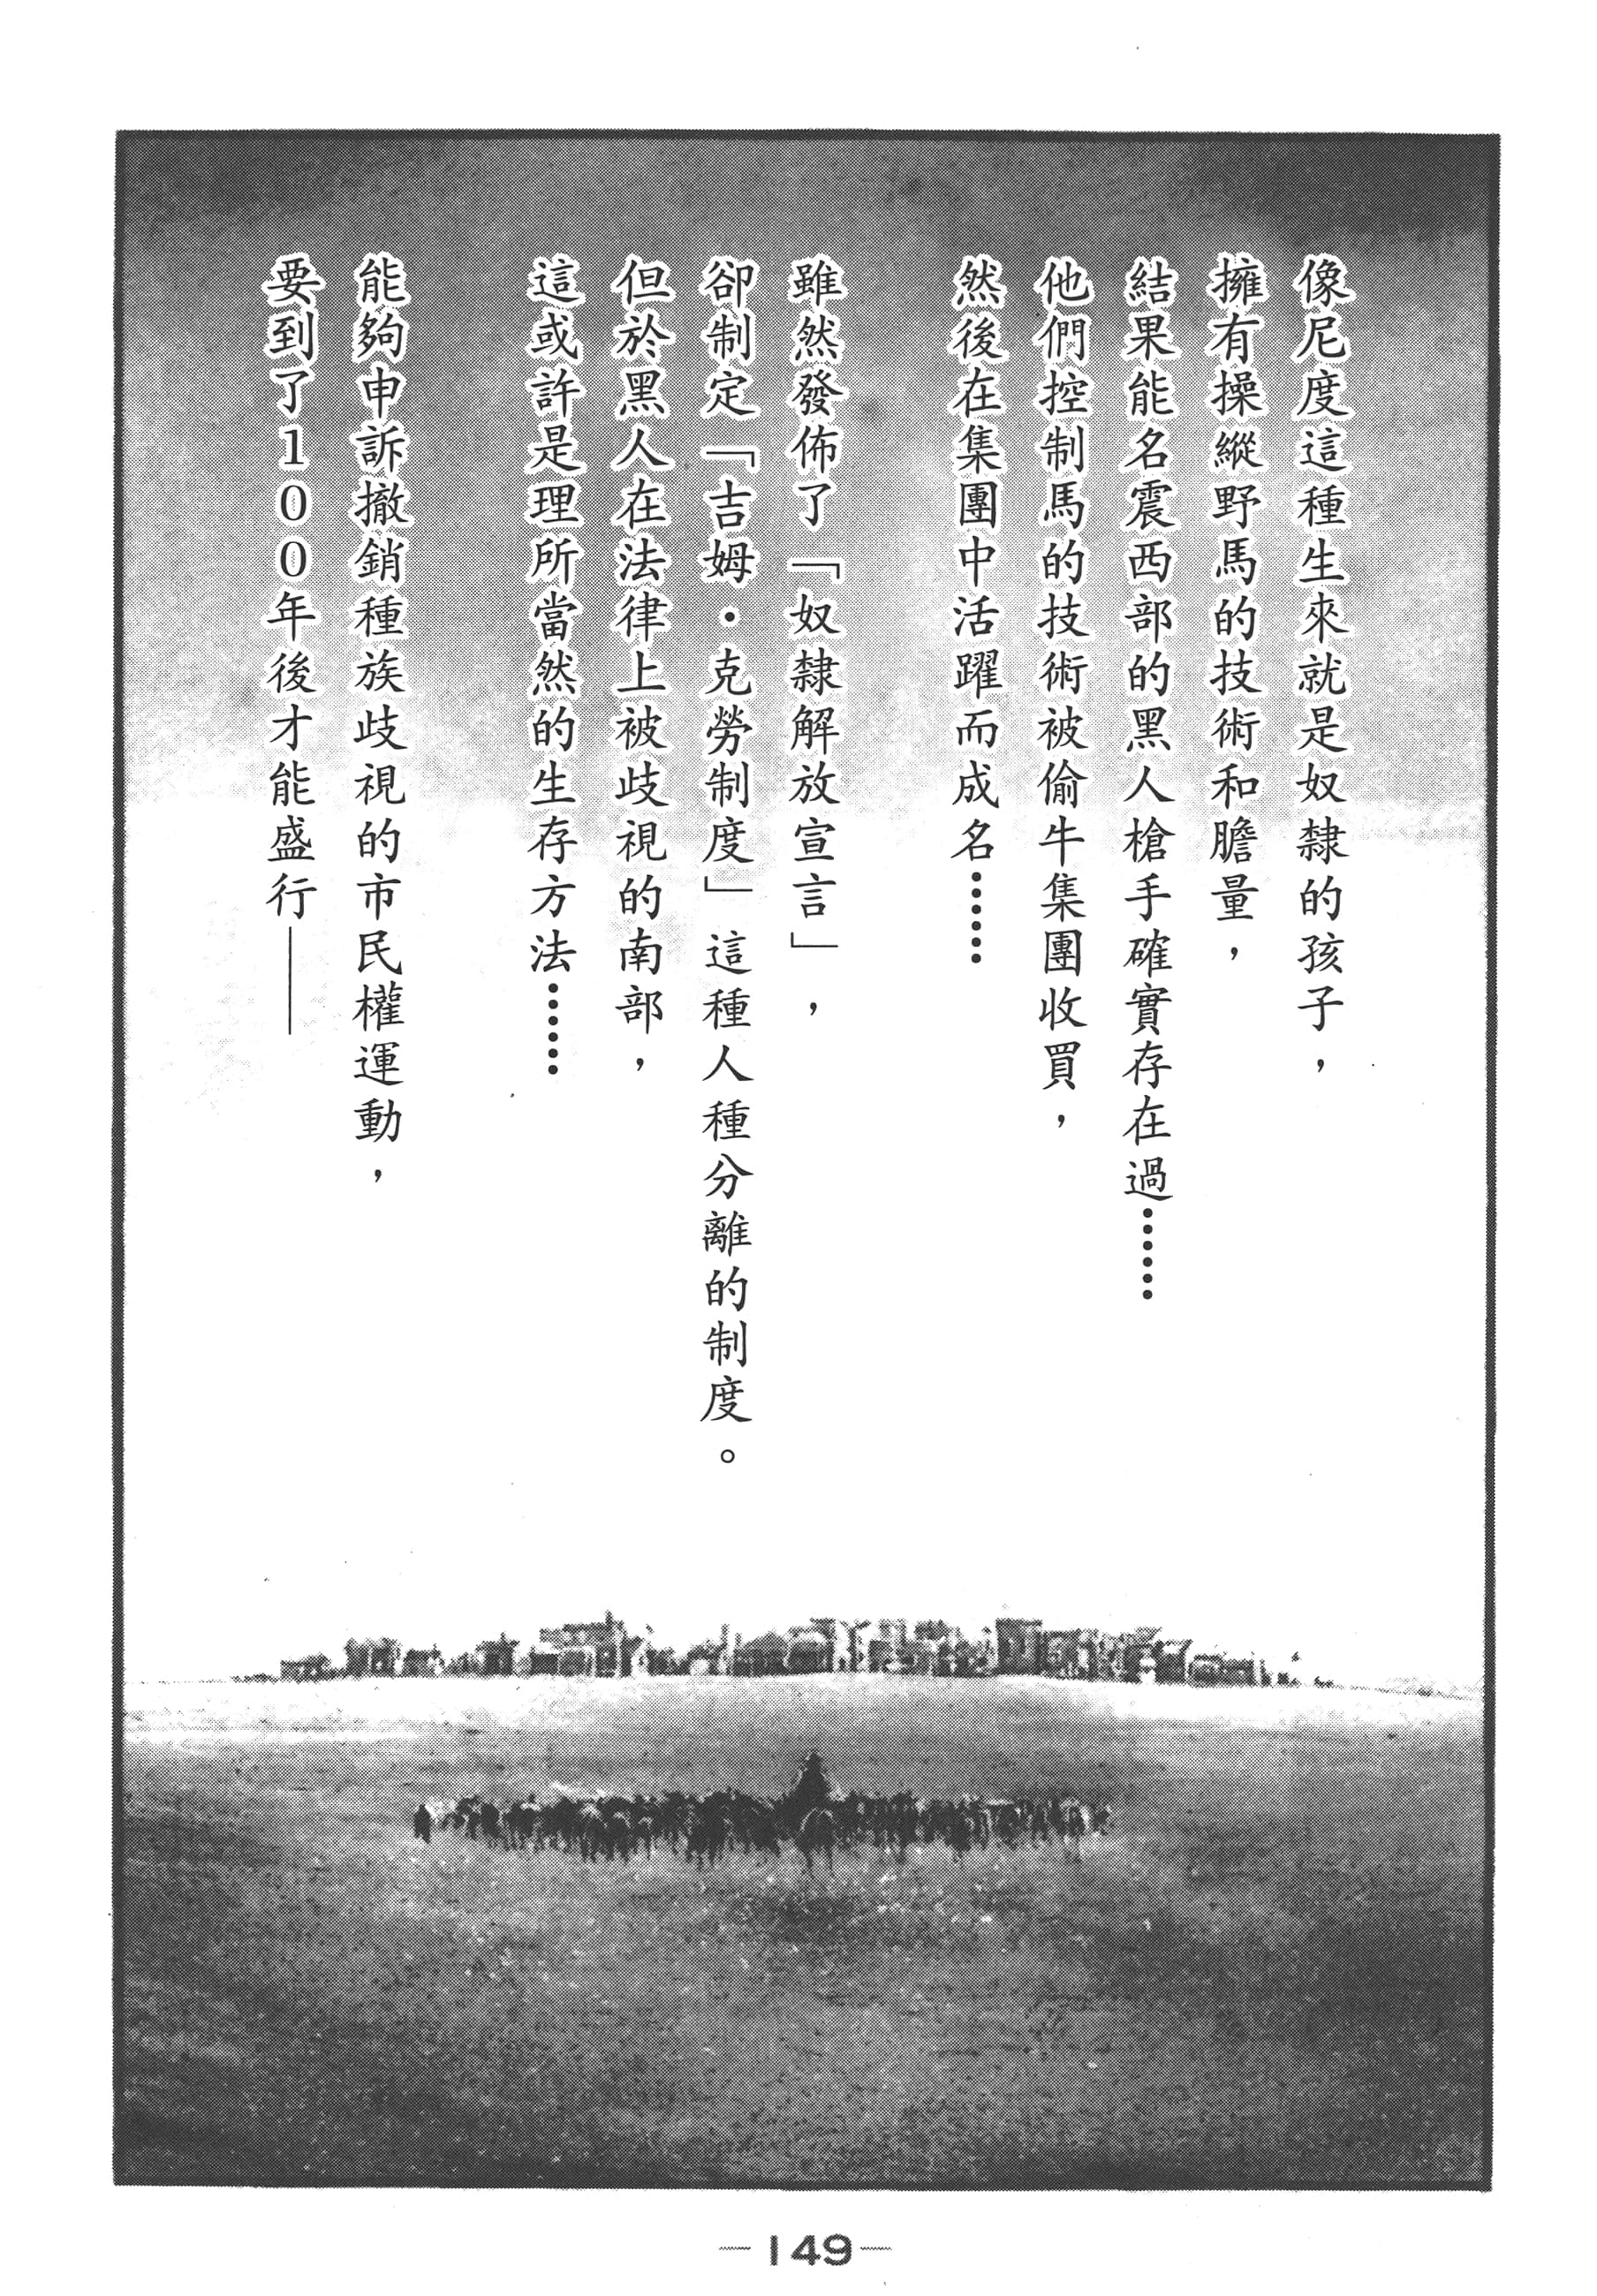 像尼度這種生來就是奴隸的孩子，
擁有操縱野馬的技術和膽量，
結果能名震西部的黑人槍手確實存在過……
他們控制馬的技術被偷牛集團收買，
然後在集團中活躍而成名……
雖然發佈了「奴隸解放宣言」，
卻制定「吉姆・克勞制度」這種人種分離的制度。
但於黑人在法律上被歧視的南部，
這或許是理所當然的生存方法……
能夠申訴撤銷種族歧視的市民權運動，
要到了100年後才能盛行——
—149—